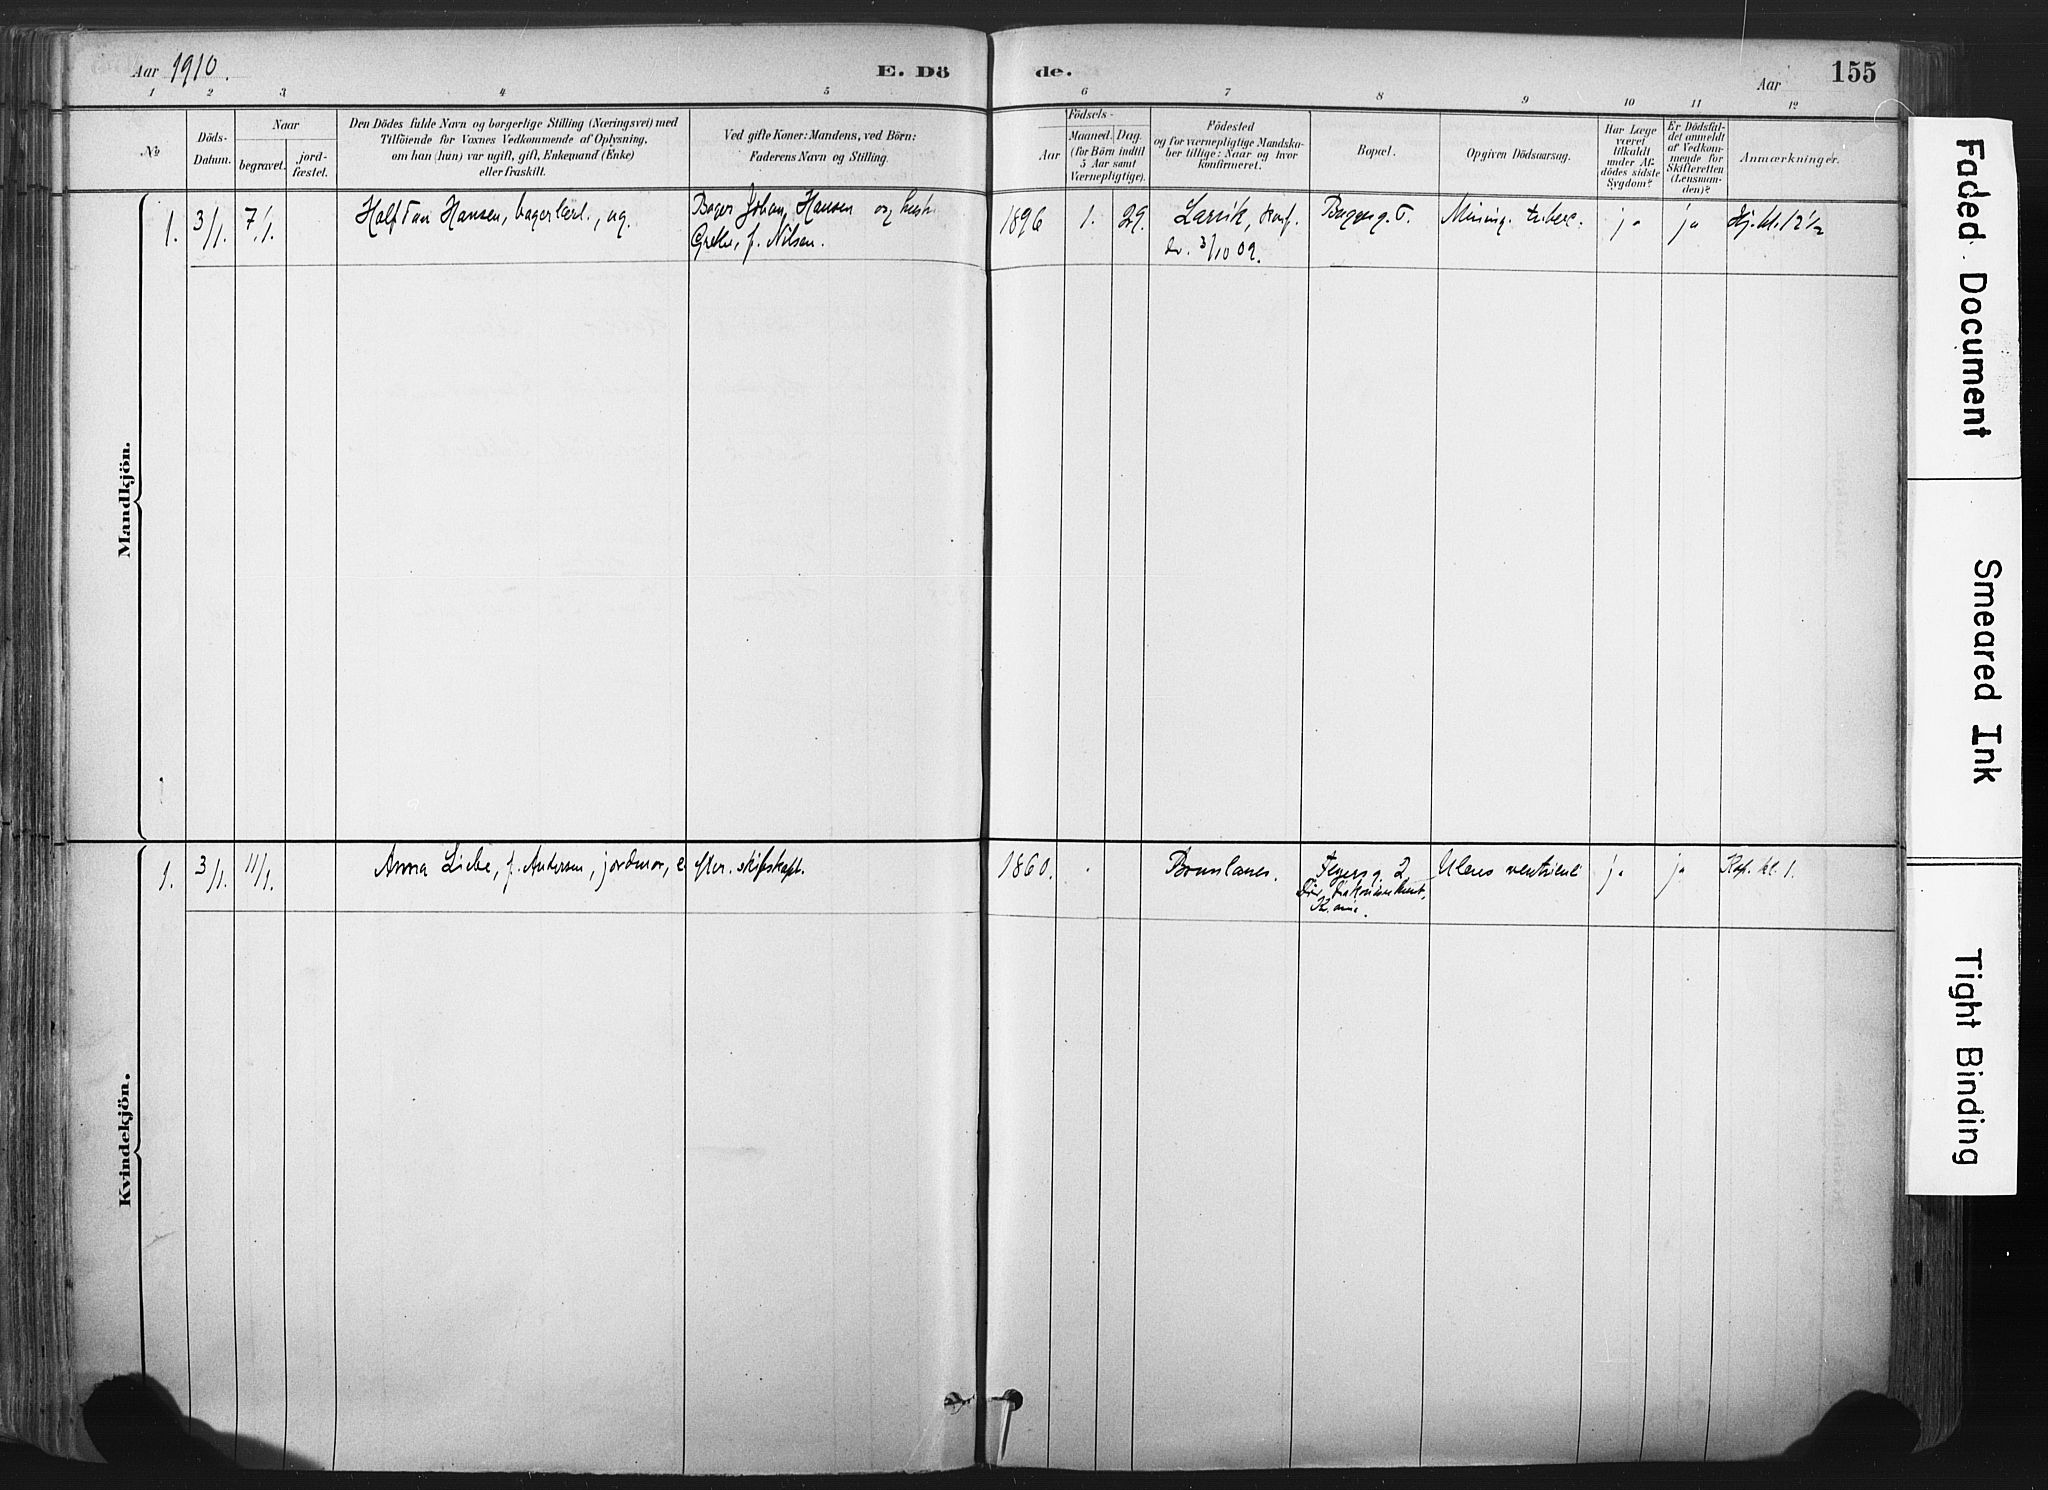 Aar 1910.
E. Döde.
Aar
155
1 2 3 4 5 6 7 8 9 10 11 12
№
Döds-
Datum.
Naar
begravet.
jord-
fæstet.
Den Dödes fulde Navn og borgerlige Stilling (Næringsvei) med
Tilföiende for Voxnes Vedkommende af Oplysning,
om han (hun) var ugift, gift, Enkemand (Enke)
eller fraskilt.
Ved gifte Koner: Mandens, ved Börn:
Faderens Navn og Stilling.
Födsels-
Aar
Maaned.
Dag.
(for Börn indtil
5 Aar samt
Værnepligtige).
Födested
og for værnepligtige Mandska-
ber tillige: Naar og hvor
konfirmeret.
Bopæl.
Opgiven Dödsaarsag.
Har Læge
været
tilkaldt
under Af-
dödes sidste
Sygdom?
Er Dödsfal-
det anmeldt
af Vedkom-
mende for
Skifteretten
(Lensman-
den)?
Anmærkninger.
Mandkjön.
1. 3/1. 7/1. Halfdan Hansen, bagerlærl., ug. Bager Johan Hansen og hustru 1896 1. 29. Larvik, konf. Bagerg. Mening. tuberc. ja ja kl. 12½
f. Nilsen. 3/10 09.
Kvindekjön.
1. 3/1. 11/1. Anna f. Andersen, jordmor, 1860. Brunlanes. 2 Ulcus ventriculi ja ja Kap. kl. 1.
K.ania.
Faded Document
Smeared Ink
Tight Binding